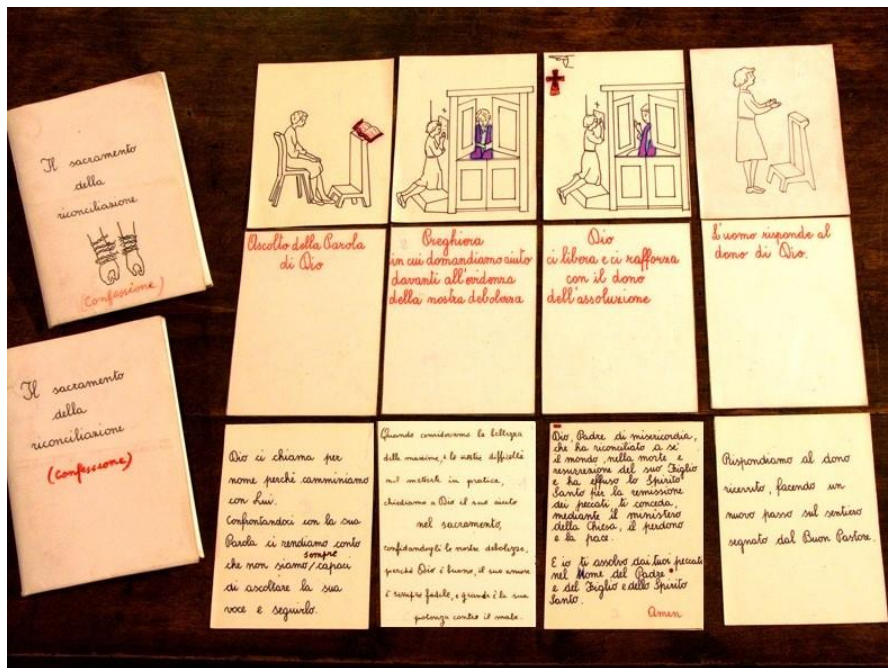 Il sacramento
della
riconciliazione
(Confessione)
Il sacramento
della
riconciliazione
(Confessione)
Ascolto della Parola
di Dio
Preghiera
in cui domandiamo aiuto
davanti all'evidenza
della nostra debolezza
Dio
ci libera e ci rafforza
con il dono
dell'assoluzione
L'uomo risponde al
dono di Dio.
Dio ci chiama per
nome perché camminiamo
con Lui.
Confrontandoci con la sua
Parola ci rendiamo conto
sempre
che non siamo/capaci
di ascoltare la sua
voce e seguirlo.
Quando consideriamo la bellezza
delle massime, e le nostre difficoltà
nel metterle in pratica,
chiediamo a Dio il suo aiuto
nel sacramento,
confidandogli le nostre debolezze,
perché Dio è buono, il suo amore
è sempre fedele, e grande è la sua
potenza contro il male.
Dio, Padre di misericordia,
che ha riconciliato a se'
il mondo, nella morte e
resurrezione del suo Figlio
e ha effuso lo Spirito
Santo per la remissione
dei peccati ti conceda,
mediante il ministero
della Chiesa, il perdono
e la pace.
E io ti assolvo dai tuoi peccati
nel Nome del Padre
e del Figlio e dello Spirito
Santo.
Amen
Rispondiamo al dono
ricevuto, facendo un
nuovo passo sul sentiero
segnato dal Buon Pastore.